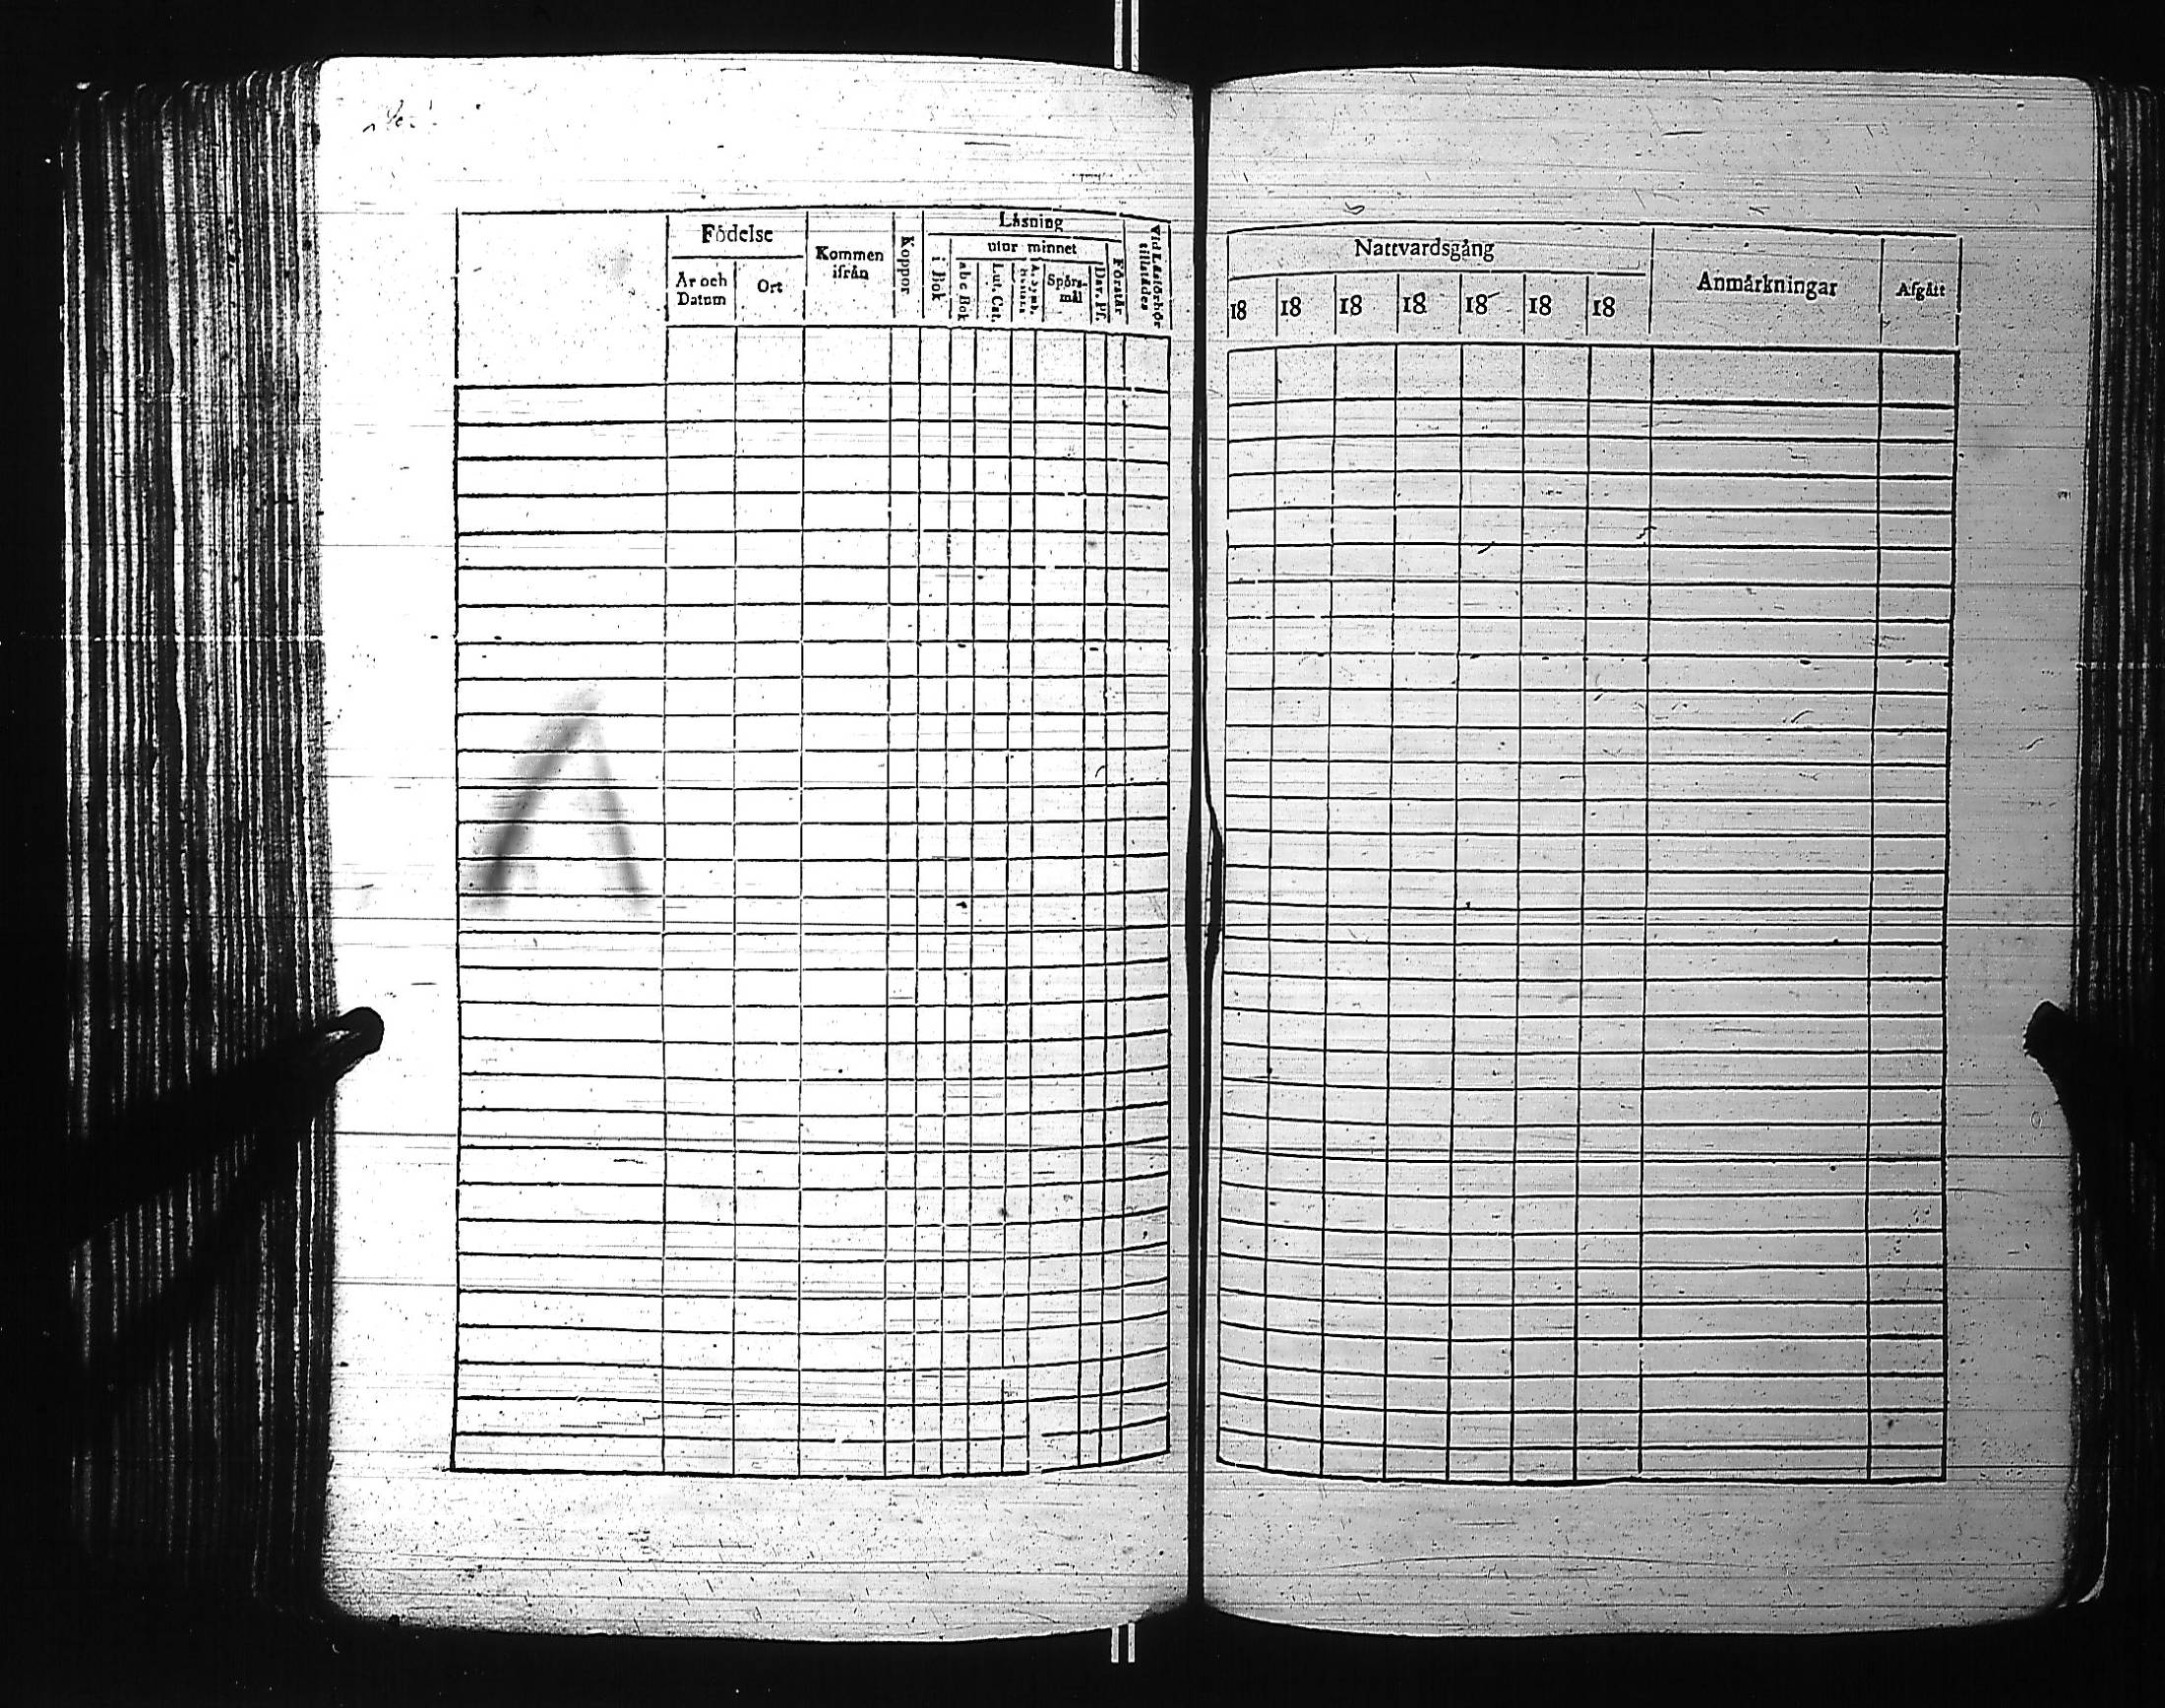 Födelse
År och Datum
Ort
Kommen ifrån
Koppor
Läsning
i Bok
utur minnet
abc Bok
Lut. Cat.
Spörs-mål
Dav. Pf.
Förstår
Vid Läsförhör tillstädes
Nattvardsgång
18 18 18 18 18 18 18
Anmärkningar
Afgått